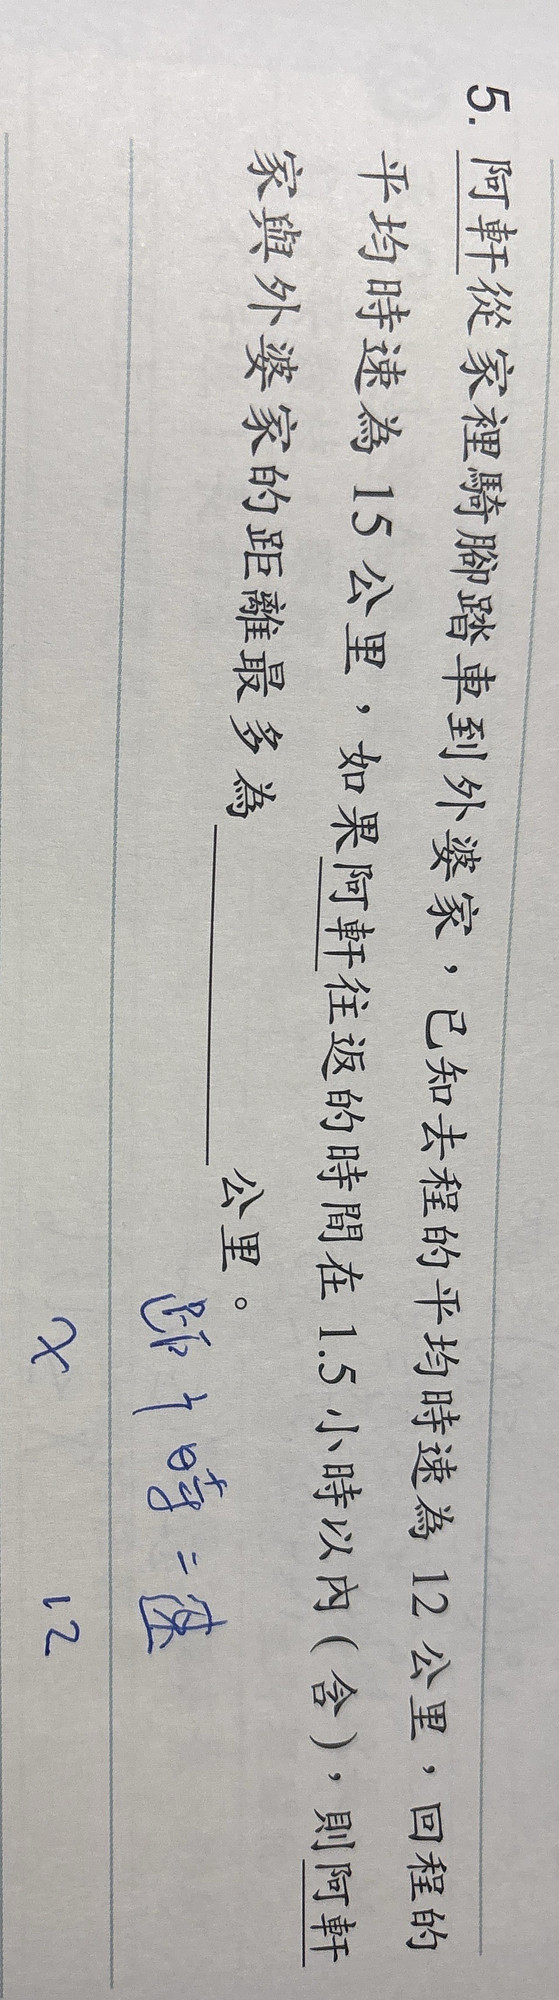 5. 阿軒從家裡騎腳踏車到外婆家，已知去程的平均時速為 12 公里，回程的
平均時速為 15 公里，如果阿軒往返的時間在 1.5 小時以內（含），則阿軒
家與外婆家的距離最多為＿＿＿＿公里。
距 ÷ 時 = 速
x 12